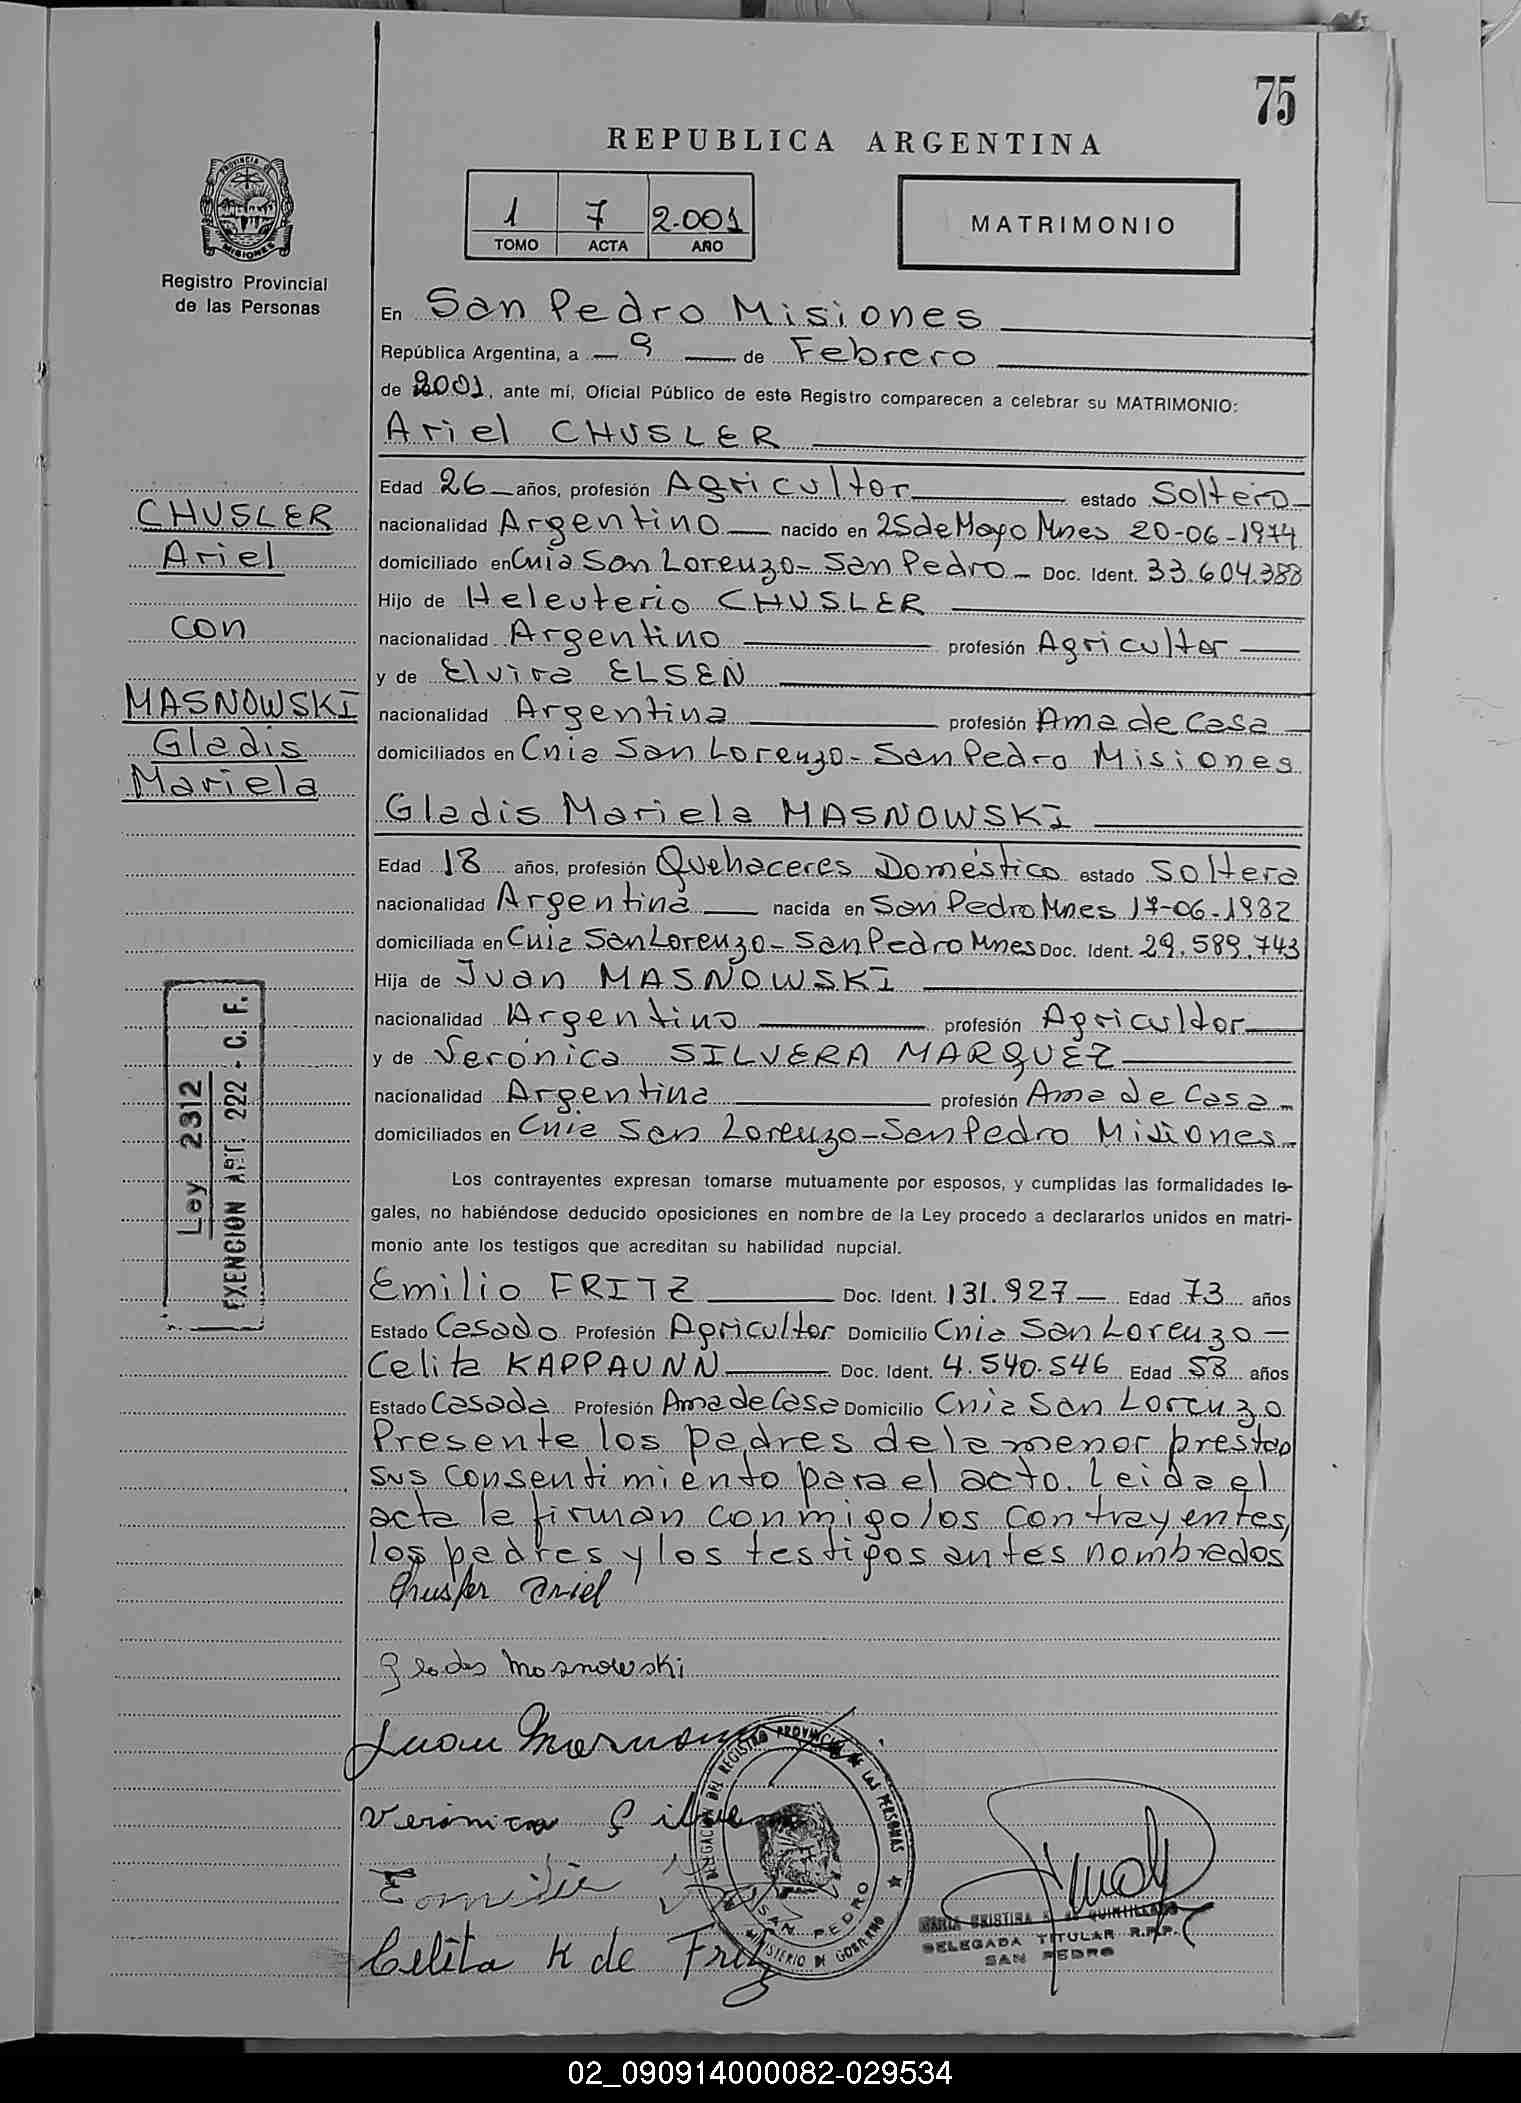 75
REPUBLICA ARGENTINA
PROVINCIA DE MISIONES
Registro Provincial
de las Personas
1 7 2.001
TOMO ACTA AÑO
MATRIMONIO
En San Pedro Misiones
República Argentina, a - 9 - de Febrero
de 2001, ante mí, Oficial Público de este Registro comparecen a celebrar su MATRIMONIO:
Ariel CHUSLER
Edad 26 años, profesión Agricultor estado Soltero
nacionalidad Argentino nacido en 25 de Mayo Mnes 20-06-1974
domiciliado en Cnia San Lorenzo - San Pedro - Doc. Ident. 33.604.388
Hijo de Heleuterio CHUSLER
nacionalidad Argentino profesión Agricultor
y de Elvira ELSEN
nacionalidad Argentina profesión Ama de Casa
domiciliados en Cnia San Lorenzo - San Pedro Misiones
CHUSLER
Ariel
con
MASNOWSKI
Gladis
Mariela
Gladis Mariela MASNOWSKI
Edad 18 años, profesión Quehaceres Doméstico estado Soltera
nacionalidad Argentina nacida en San Pedro Mnes 17-06-1982
domiciliada en Cnia San Lorenzo - San Pedro Mnes Doc. Ident. 29.589.743
Hija de Juan MASNOWSKI
nacionalidad Argentino profesión Agricultor
y de Verónica SILVERA MARQUEZ
nacionalidad Argentina profesión Ama de Casa
domiciliados en Cnia San Lorenzo - San Pedro Misiones
Ley 2312
EXENCION ART. 222 - C. F.
Los contrayentes expresan tomarse mutuamente por esposos, y cumplidas las formalidades le-
gales, no habiéndose deducido oposiciones en nombre de la Ley procedo a declararlos unidos en matri-
monio ante los testigos que acreditan su habilidad nupcial.
Emilio FRITZ Doc. Ident. 131.927 Edad 73 años
Estado Casado Profesión Agricultor Domicilio Cnia San Lorenzo
Celita KAPPAUNN Doc. Ident. 4.540.546 Edad 58 años
Estado Casada Profesión Ama de Casa Domicilio Cnia San Lorenzo
Presente los padres de la menor prestan
sus consentimiento para el acto. Leida el
acta la firman conmigo los contrayentes,
los padres y los testigos antes nombrados
Chusler Ariel
Glades Masnowski
Juan
Verónica Silvera
Emilio
Celita K de Fritz
DELEGACION DEL REGISTRO PROVINCIAL DE LAS PERSONAS
SAN PEDRO
MINISTERIO DE GOBIERNO
MARIA CRISTINA
DELEGADA TITULAR R.P.P.
SAN PEDRO
02_090914000082-029534